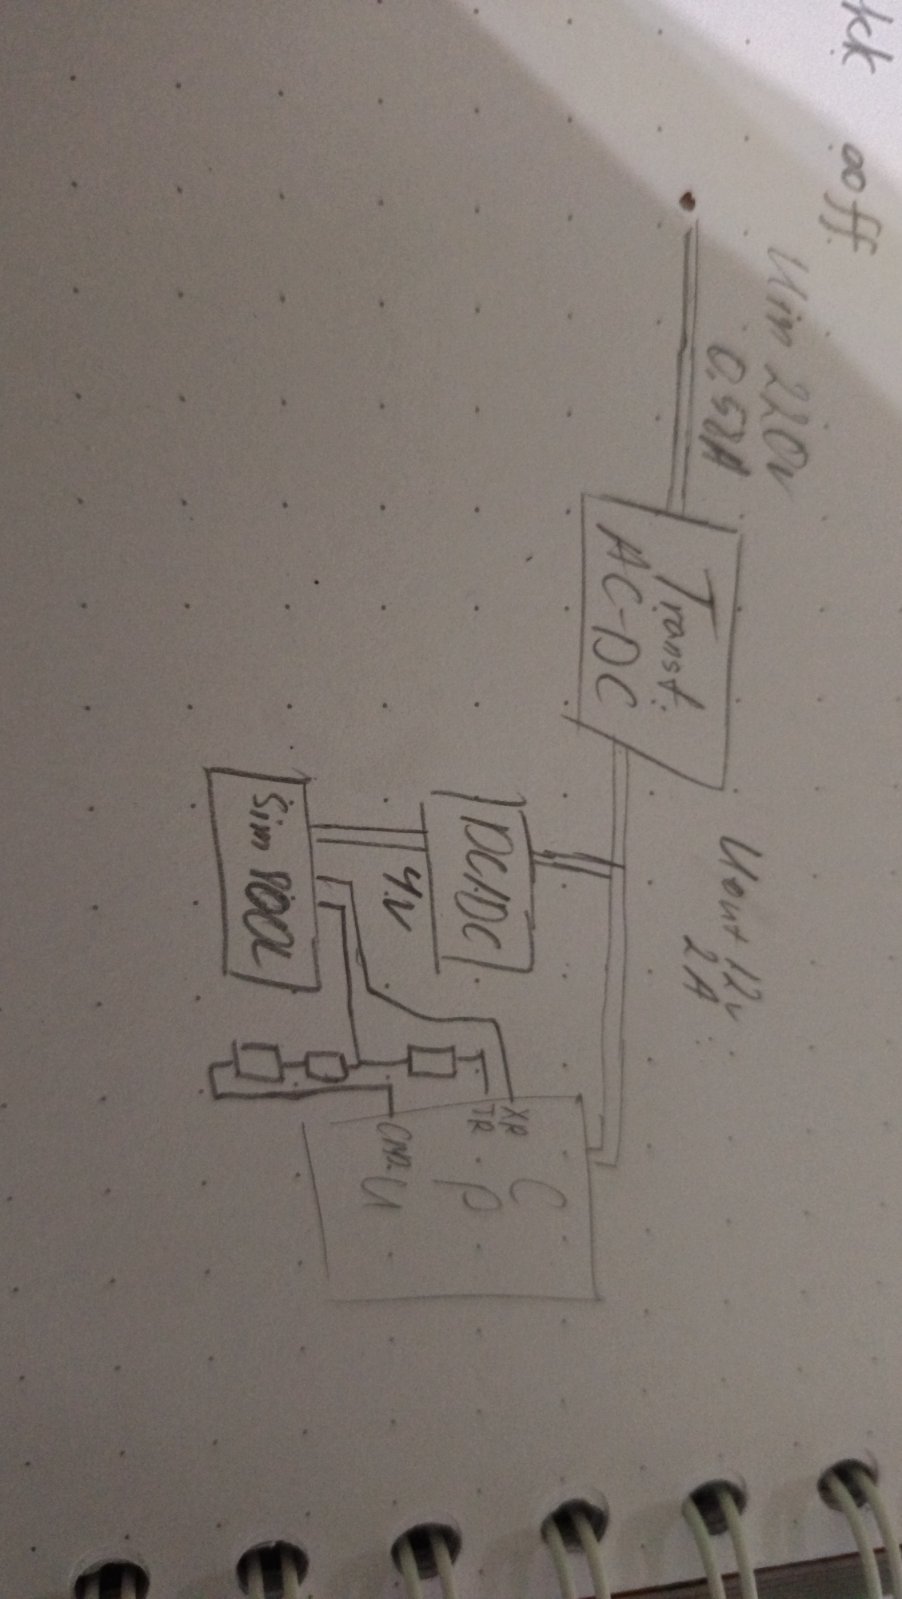 ooff
Uin 220v
0.58A
Transt.
AC-DC
Uout 12v
2A
DC/DC
4v
Sim 800L
XR
TR
C
P
U